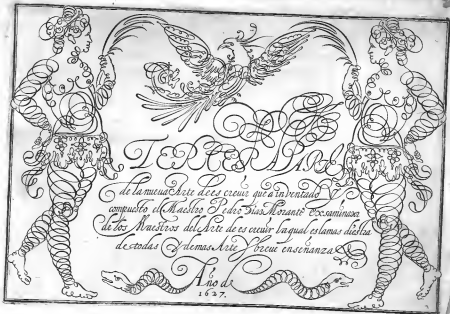 TERCERA PARTE
de la nueua Arte de es creuir que a inbentado Y
compuesto el Maestro Pedro Dias Morante Exsaminador
de los Maestros del Arte de es creuir la qual es la mas diestra
de todas Y demas Arte Y breue enseñanza
Año de
1627.